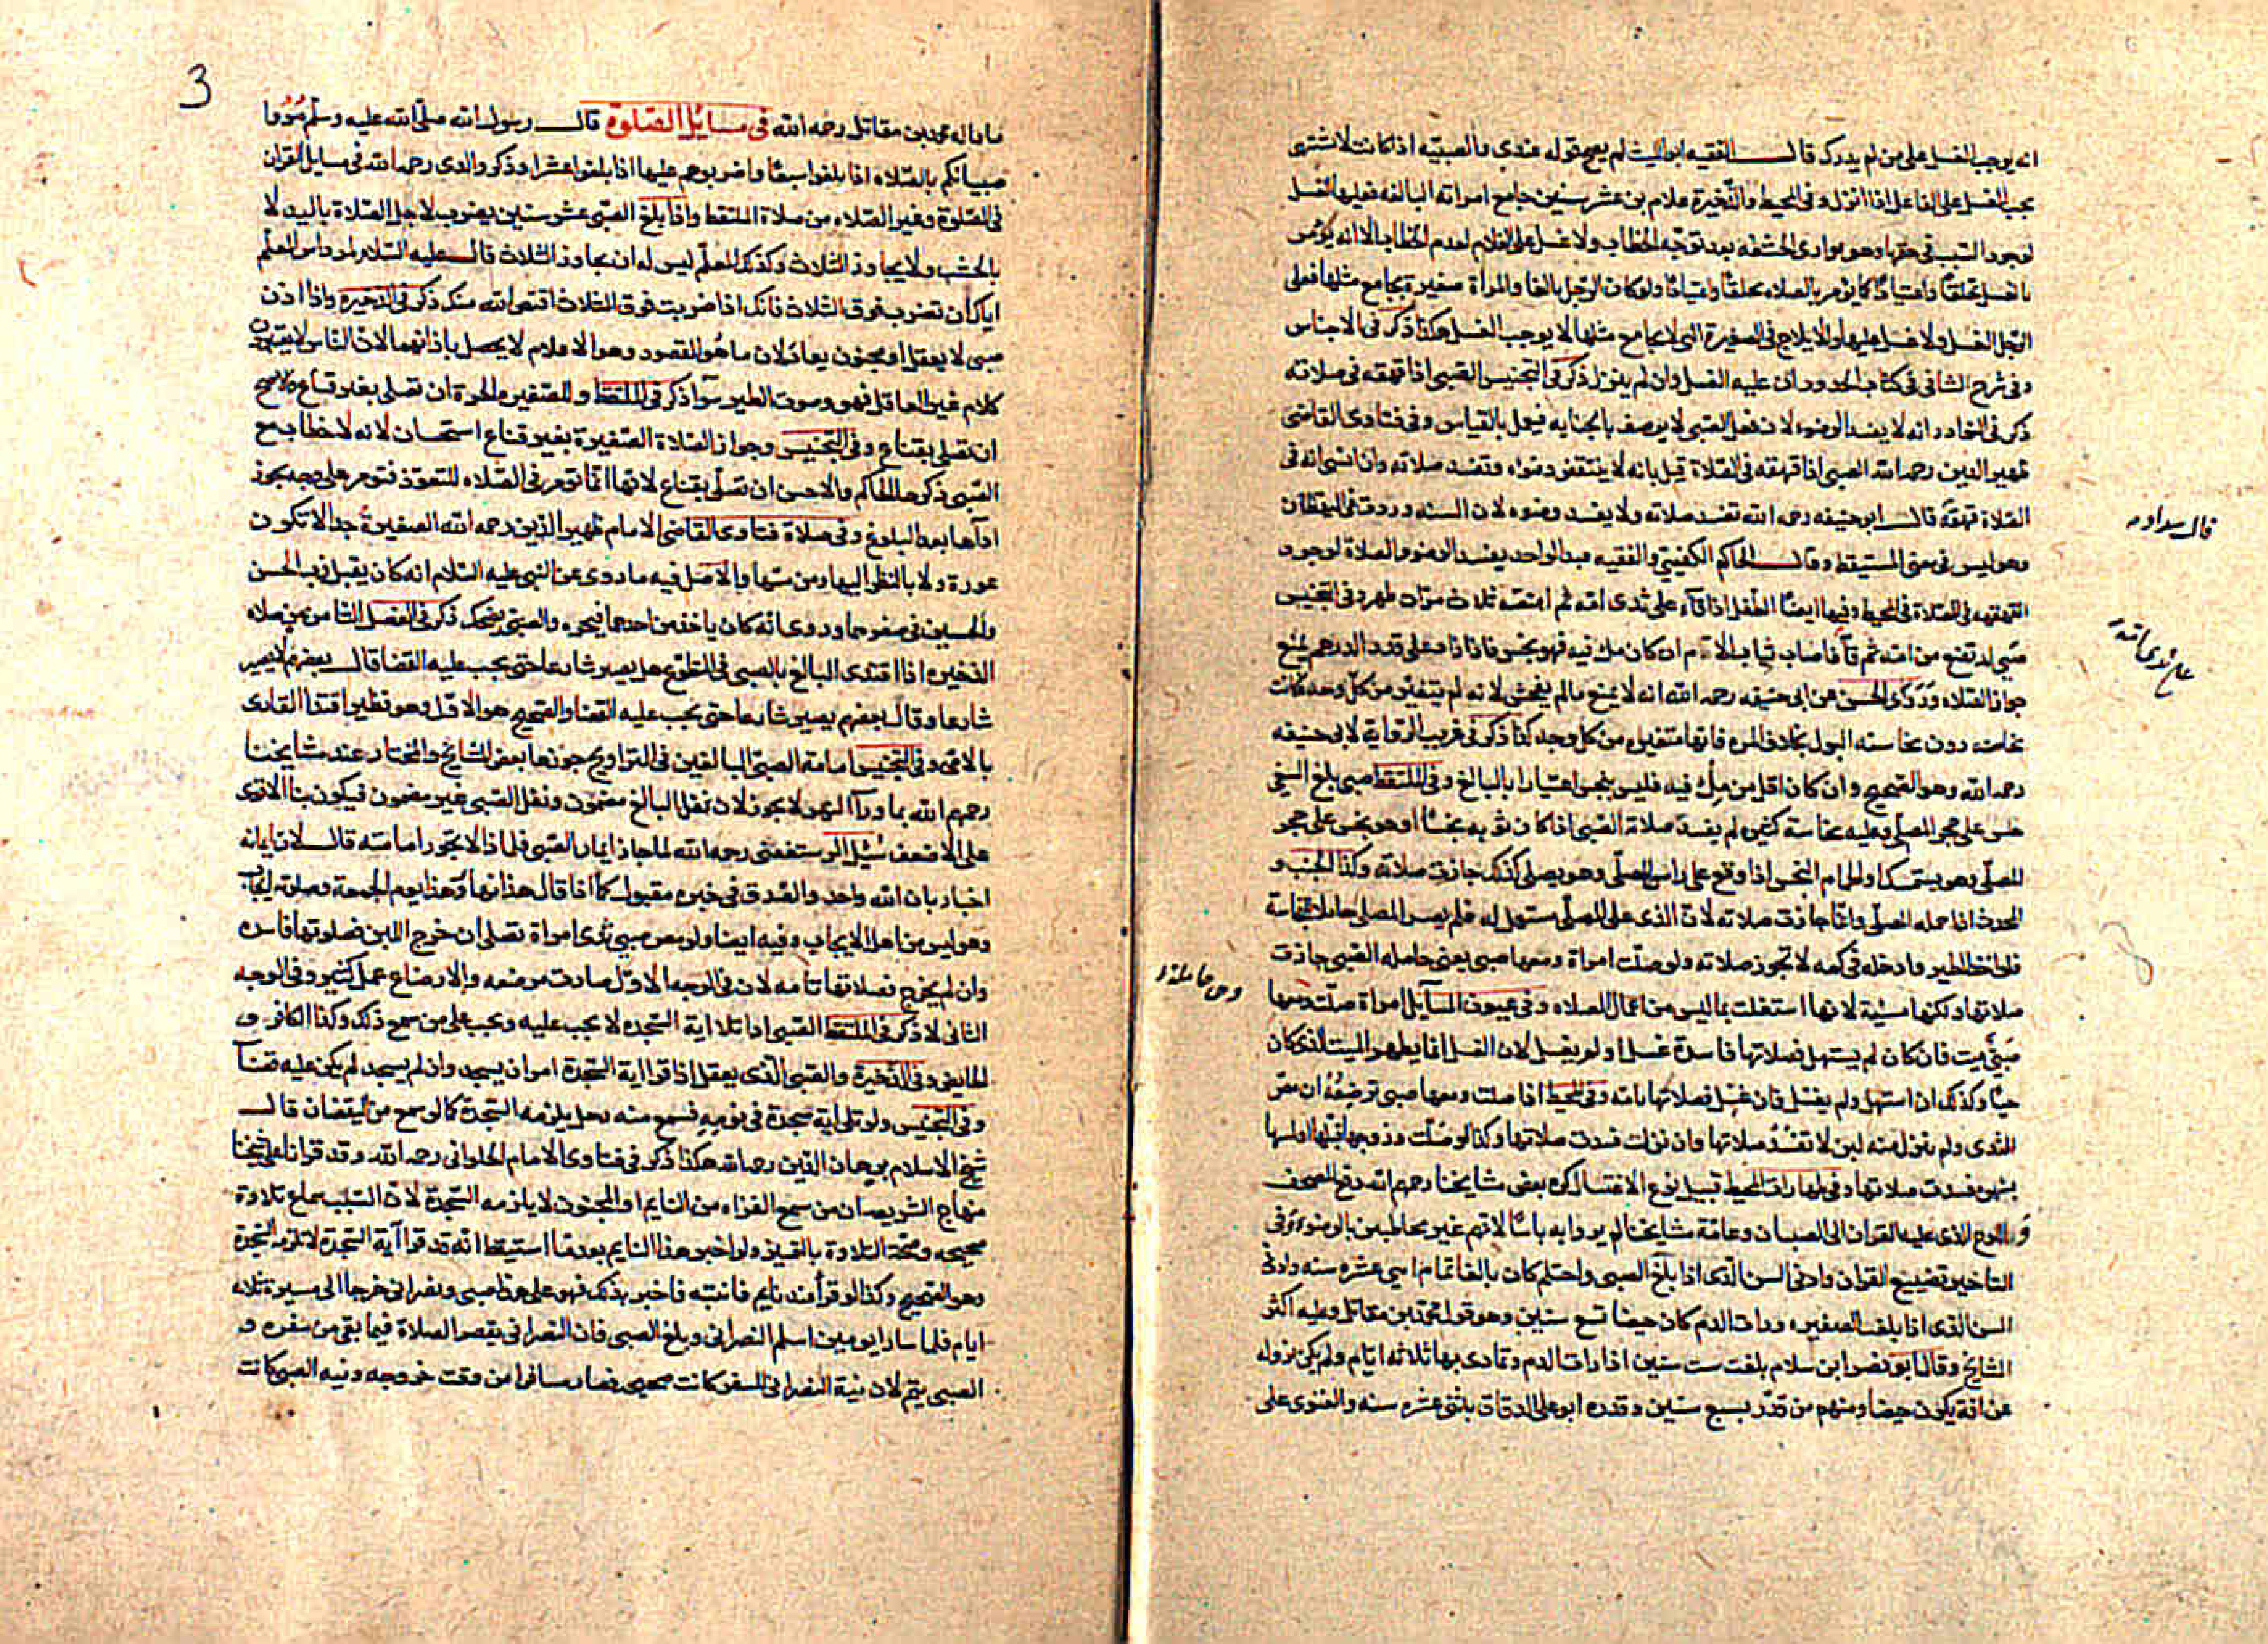 انه يوجب الغسل على من لم يدرك قال الفقيه ابو الليث لم يصح قوله عندى والصبيه اذا كانت لا تشتهى
يجب الغسل على الفاعل اذا انزل وفى المحيط والذخيرة غلام بن عشر سنين جامع امراته البالغه فعليها الغسل
لوجود السبب فى حقها وهو توارى الحشفه بعد توجه الخطاب ولا غسل على الغلام لعدم الخطاب الا انه يؤمر
بالغسل تخلقا واعتيادا كما يؤمر بالصلاه تخلقا واعتيادا ولو كان الرجل بالغا والمرأة صغيرة يجامع مثلها فعلى
الرجل الغسل ولا غسل عليها والايلاج فى الصغيرة التى لا يجامع مثلها لا يوجب الغسل هكذا ذكر فى الاجناس
وفى شرح الشافى فى كتاب الحدود ان عليه الغسل وان لم ينزل ذكر فى التجنيس الصبى اذا قهقه فى صلاته
ذكر فى النوادر انه لا يفسد الوضوء لان فعل الصبى لا يوصف بالجنايه فيعمل بالقياس وفى فتاوى القاضى
ظهير الدين رحمه الله الصبى اذا قهقه فى الصلاة قيل بانه لا ينتقض وضوءه وتفسد صلاته وان نسى انه فى
الصلاة قهقه قال ابو حنيفه رحمه الله تفسد صلاته ولا يفسد وضوءه لان السنه وردت فى اليقظان
وهو ليس فى معنى المستيقظ وقال الحاكم الكفينى والفقيه عبد الواحد يفسد الوضوء والصلاة لوجود
القهقهه فى الصلاة فى المحيط وفيها ايضا الطفل اذا قاء على ثدى امه ثم امتصه ثلاث مرات طهر وفى التجنيس
صبى ارتضع من امه ثم قاء فاصاب ثياب الام ان كان ملء فيه فهو نجس فاذا زاد على قدر الدرهم يمنع
جواز الصلاه وروى الحسن عن ابى حنيفه رحمه الله انه لا يمنع ما لم يفحش لانه لم يتغير من كل وجه فكانت
نجاسته دون نجاسة البول بخلاف المره فانها متغيره من كل وجه كذا ذكر فى غريب الروايه لابى حنيفه
رحمه الله وهو الصحيح وان كان اقل من ملء فيه فليس بنجس اعتبارا بالبالغ وفى الملتقط صبى بلغ السعى
جلس على حجر المصلى وعليه نجاسة كثيره لم يفسد صلاة الصبى اذا كان ثوبه نجسا او هو نجس على حجر
المصلى وهو يستمسك او الحمام النجس اذا وقع على راس المصلى وهو يصلى كذلك جازت صلاته وكذا الجنب و
المحدث اذا حمله المصلى وانما جازت صلاته لان الذى على المصلى مستعمل له فلم يصر المصلى حاملا للنجاسة
فلو اخذ الطير وادخله فى كمه لا تجوز صلاته ولو صلت امراة ومعها صبى يعنى حامله الصبى جازت
صلاتها ولكنها مسيئة لانها اشتغلت بما ليس من اعمال الصلاه وفى عيون المسايل امراة صلت ومعها
صبى ميت فان كان لم يستهل فصلاتها فاسدة غسل او لم يغسل لان الغسل انما يطهر الميت الذى كان
حيا وكذلك ان استهل ولم يغسل فان غسل فصلاتها تامه وفى المحيط اذا صلت ومعها صبى ترضعه ان مص
الثدى ولم ينزل منه لبن لا تفسد صلاتها وان نزلت فسدت صلاتها وكذا لو صلت وزوجها قبلها او لمسها
بشهوه فسدت صلاتها وفى طهارات المحيط قبيل نوع الاغتسال كره بعض مشايخنا رحمهم الله دفع المصحف
واللوح الذى عليه القران الى الصبيان وعامة مشايخنا لم يروا به باسا لانهم غير مخاطبين بالوضوء وفى
التاخير تضييع القران وادنى السن الذى اذا بلغ الصبى واحتلم كان بالغا تمام اثنى عشره سنه وادنى
السن الذى اذا بلغت الصغيره ورات الدم كان حيضا تسع سنين وهو قول محمد بن مقاتل وعليه اكثر
المشايخ وقال ابو نصر ابن سلام بلغت ست سنين اذا رات الدم وتمادى بها ثلاثه ايام ولم يكن نزوله
عن افة يكون حيضا ومنهم من قدر بسبع سنين وقدره ابو على الدقاق باثنى عشره سنه والفتوى على
على ثدى امه
وهى حاملة
3
ما قاله محمد بن مقاتل رحمه الله فى مسايل الصلوة قال رسول الله صلى الله عليه وسلم مروا
صبيانكم بالصلاه اذا بلغوا سبعا واضربوهم عليها اذا بلغوا عشرا وذكر والدى رحمه الله فى مسايل القران
فى الصلوة وغير الصلاه من صلاة الملتقط واذا بلغ الصبى عشر سنين يضرب لاجل الصلاة باليد لا
بالخشب ولا يجاوز الثلاث وكذلك المعلم ليس له ان يجاوز الثلاث قال عليه السلام لمرداس المعلم
اياك ان تضرب فوق الثلاث فانك اذا ضربت فوق الثلاث اقتص الله منك ذكر فى الذخيره واذا اذن
صبى لا يعقل او مجنون يعاد لان ما هو المقصود وهو الاعلام لا يحصل باذانهما لان الناس لا يعتبرون
كلام غير العاقل فهو وصوت الطير سوآ ذكر فى الملتقط والصغيره الحرة ان تصلى بغير قناع والاصح
ان تصلى بقناع وفى التجنيس وجواز الصلاة الصغيرة بغير قناع استحسان لانه لا خطاب مع
الصبى ذكره الحاكم والاحسن ان تصلى بقناع لانها انما تؤمر فى الصلاه للتعود فتؤمر على وجه يجوز
اداءها بعد البلوغ وفى صلاة فتاوى القاضى الامام ظهير الدين رحمه الله الصغيرة جدا لا تكون
عورة ولا باس بالنظر اليها ومن مسها والاصل فيه ما روى عن النبى عليه السلام انه كان يقبل زب الحسن
والحسين فى صغرهما وروى انه كان ياخذ من احدهما فيجره والصبى يضحك ذكر فى الفصل الثامن من صلاه
الذخيره اذا اقتدى البالغ بالصبى فى التطوع هل يصير شارعا حتى يجب عليه القضا قال بعضهم لا يصير
شارعا وقال بعضهم يصير شارعا حتى يجب عليه القضا والصحيح هو الاول وهو نظير اقتدا القارى
بالامى وفى التجنيس امامة الصبى البالغين فى التراويح جوزها بعض المشايخ والمختار عند مشايخنا
رحمهم الله بما ورآ النهر لا يجوز لان نفل البالغ مضمون ونفل الصبى غير مضمون فيكون بنا الاقوى
على الاضعف سئل الرستغفنى رحمه الله لما جاز ايمان الصبى فلماذا لا يجوز امامته قال لان ايمانه
اخبار بان الله واحد والصدق فى خبره مقبول كما اذا قال هذا نهار وهذا يوم الجمعة وصلوته ايجاب
وهو ليس من اهل الايجاب وفيه ايضا ولو مص صبى ثدى امراة تصلى ان خرج اللبن فصلوتها فاسده
وان لم يخرج فصلاتها تامه لان فى الوجه الاول صارت مرضعه والارضاع عمل كثير وفى الوجه
الثانى لا ذكر فى الملتقط الصبى اذا تلا اية السجده لا يجب عليه ويجب على من سمع ذلك وكذا الكافر و
الحايض وفى الذخيرة والصبى الذى يعقل اذا قرا اية السجدة امر ان يسجد وان لم يسجد لم يكن عليه قضآ
وفى التجنيس ولو تلى اية سجدة فى نومه فسمع منه رجل يلزمه السجدة كما لو سمع من اليقضان قال
شيخ الاسلام برهان الدين رحمه الله هكذا ذكر فى فتاوى الامام الحلوانى رحمه الله وقد قرانا على شيخنا
منهاج الشريعه ان من سمع القراه من النايم او المجنون لا يلزمه السجدة لان السبب سماع تلاوة
صحيحه وصحة التلاوة بالتمييز ولو اخبر هذا النايم بعد ما استيقظ انه قد قرا آية السجدة لا تلزمه السجدة
وهو الصحيح وكذا لو قرأ عند نايم فانتبه فاخبر بذلك فهو على هذا صبى ونصرانى خرجا الى مسيرة ثلاثه
ايام فلما سارا يومين اسلم النصرانى وبلغ الصبى فان النصرانى يقصر الصلاة فيما بقى من سفره و
الصبى يتم لان نية النصرانى للسفر كانت صحيحه فصار مسافرا من وقت خروجه ونيه الصبى كانت